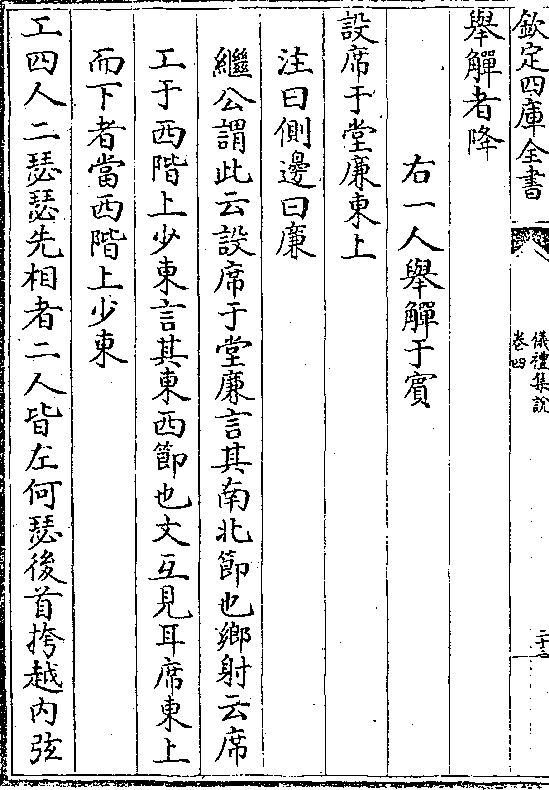 欽定四庫全書
儀禮集說
卷四
舉觶者降
右一人舉觶于賓
設席于堂廉東上
注曰側邊曰廉
繼公謂此云設席于堂廉言其南北節也鄉射云席
工于西階上少東言其東西節也文互見耳席東上
而下者當西階上少東
工四人二瑟瑟先相者二人皆左何瑟後首挎越內弦